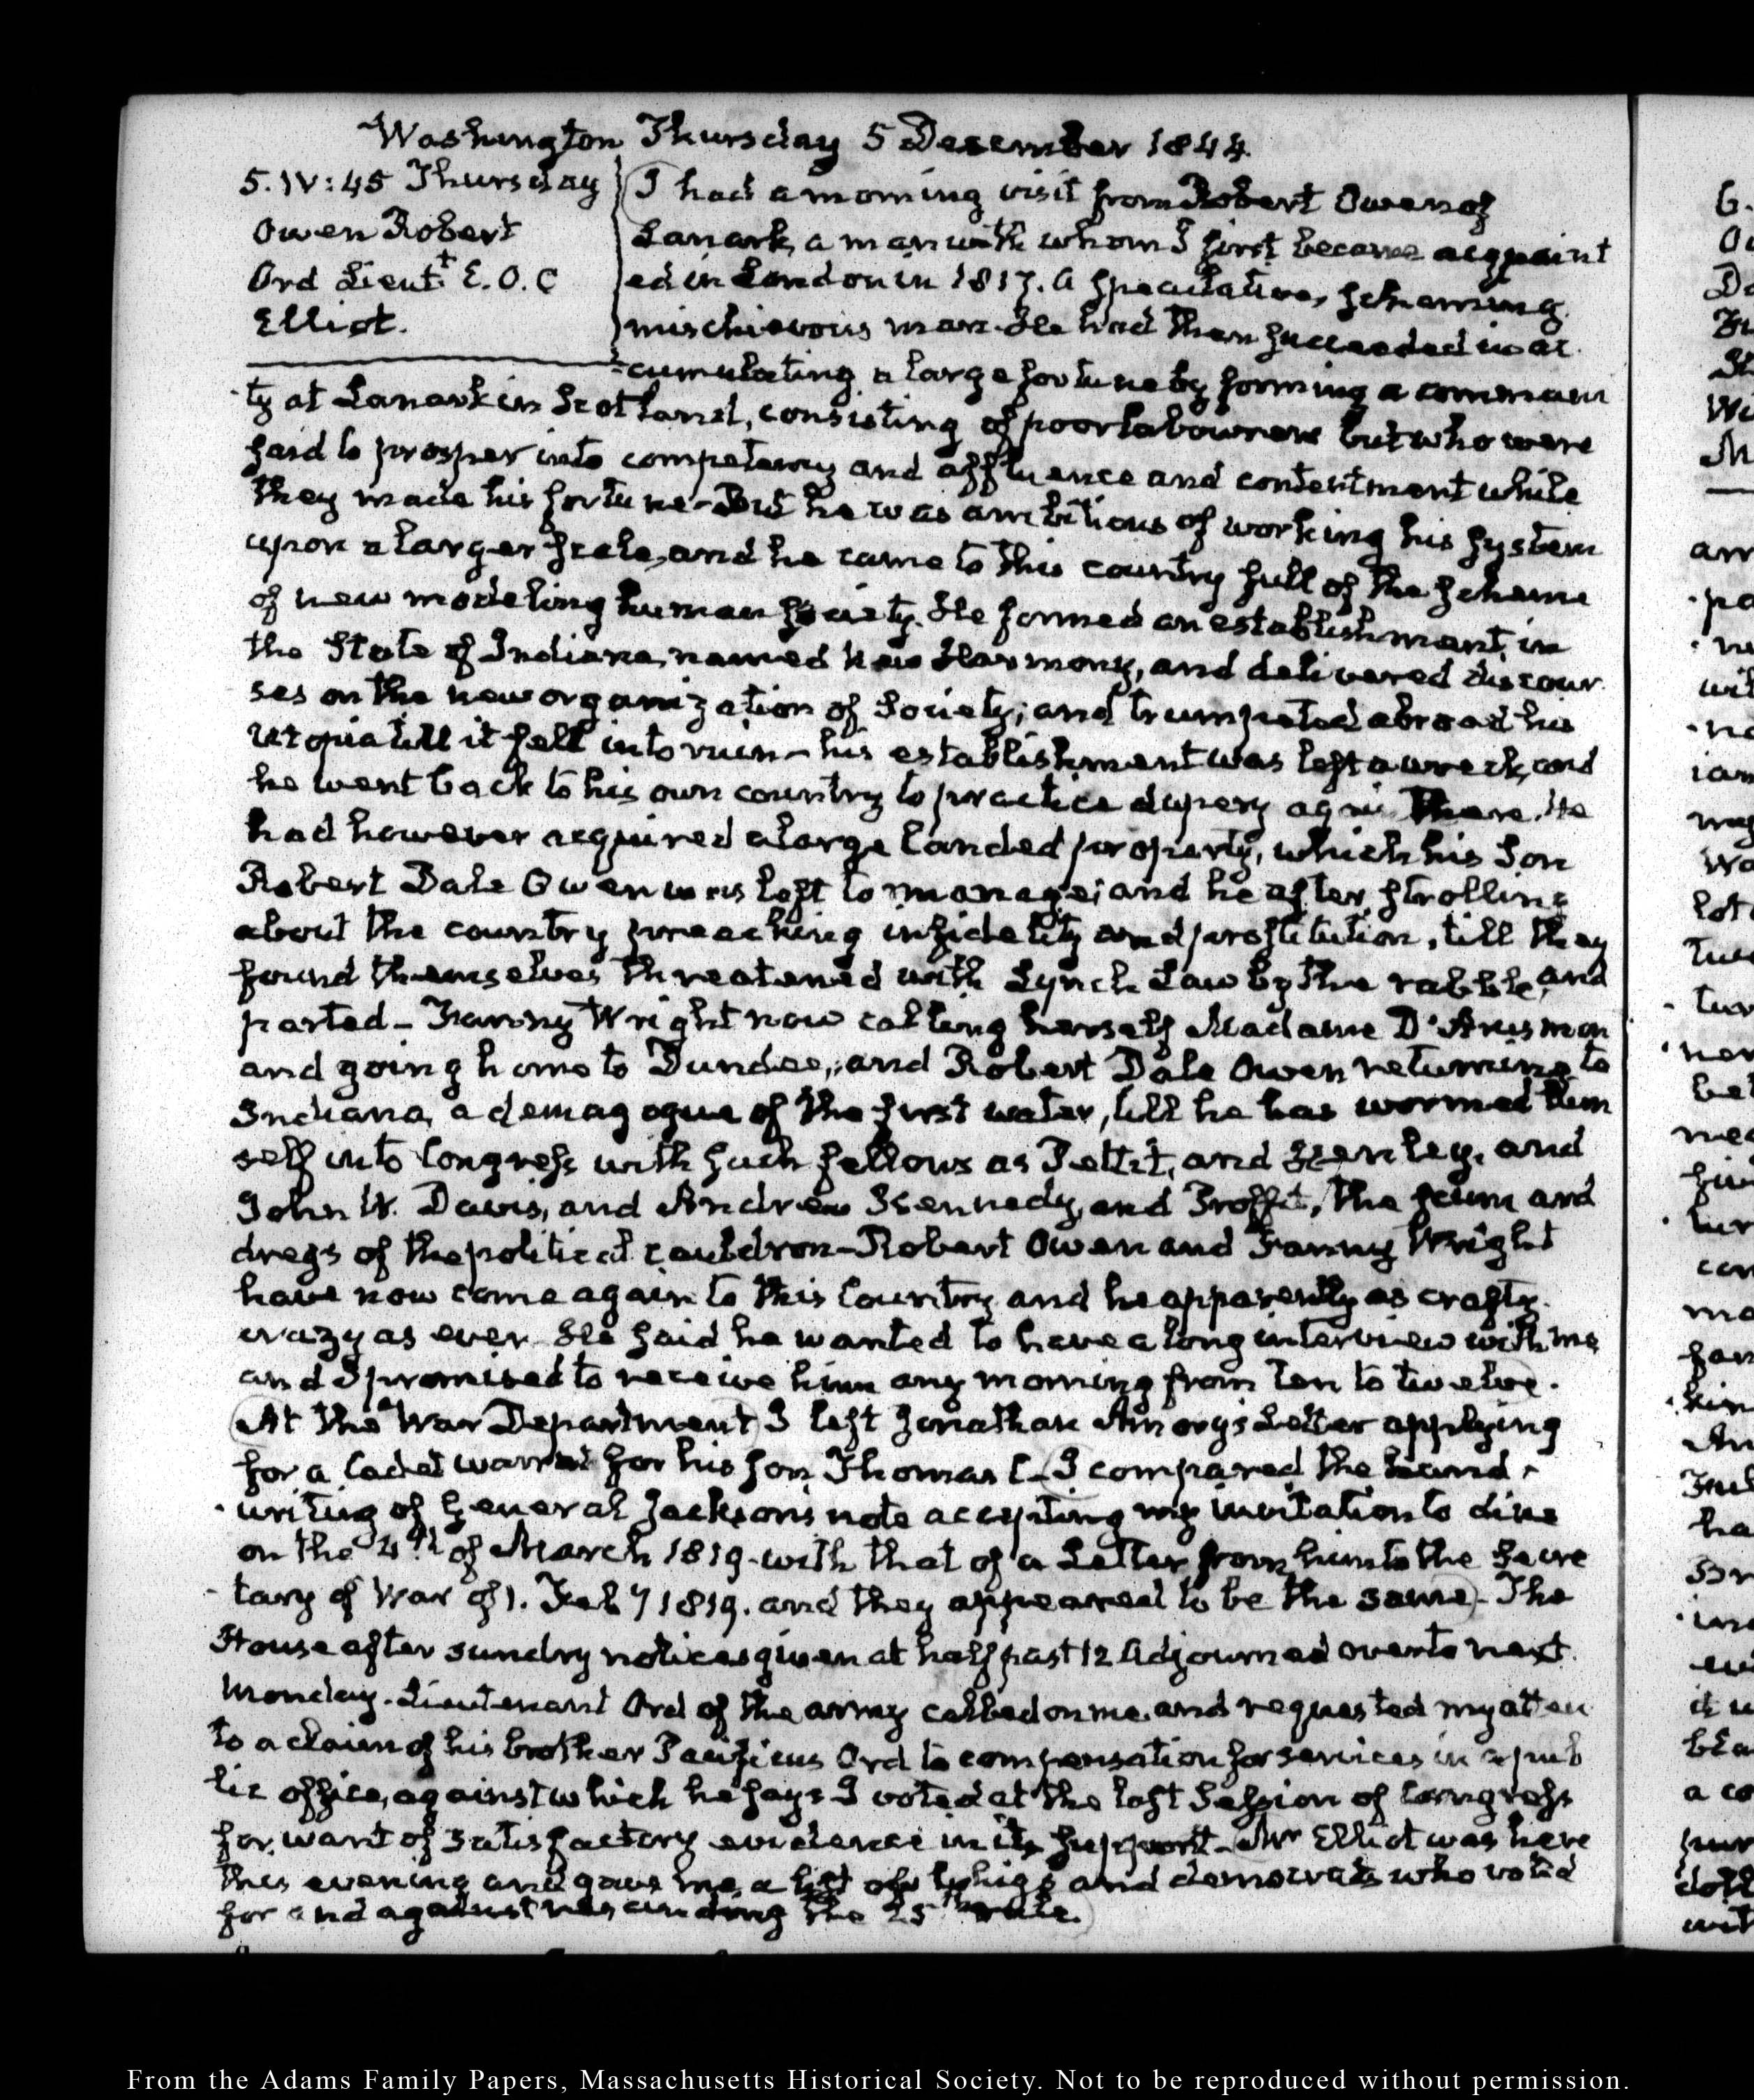 Washington Thursday 5 December 1844.
5. IV:45 Thursday
Owen Robert
Ord Lieut.t E. O. C
Elliot.
I had a morning visit from Robert Owen of
Lanark, a man with whom I first became acquaint
ed in London in 1817. a speculative, scheming
mischievous man. He had then succeeded in ac
cumulating a large fortune by forming a communi
ty at Lanark in Scotland, consisting of poor labourers but who were
said to prosper into competency and affluence and contentment while
they made his fortune - But he was ambitious of working his system
upon a larger scale, and he came to this country full of the scheme
of new modeling human society. He formed an establishment, in
the State of Indiana, named New Harmony, and delivered discour
ses on the new organization of Society; and trumpeted abroad his
Utopia till it fell into ruin - his establishment was left a wreck, and
he went back to his own country to practice dupery again there. He
had however acquired a large landed property, which his Son
Robert Dale Owen was left to manage; and he after strolling
about the country preaching infidelity and prostitution, till they
found themselves threatened with Lynch Law by the rabble, and
parted - Fanny Wright now calling herself Madame D'Arusmon
and going home to Dundee, and Robert Dale Owen returning to
Indiana, a demagogue of the first water, till he has wormed him
self into Congress with such fellows as Pettit, and Henley, and
John W. Davis, and Andrew Kennedy, and Proffit, the scum and
dregs of the political cauldron - Robert Owen and Fanny Wright
have now come again to this Country, and he apparently as crafty
crazy as ever. He said he wanted to have a long interview with me
and I promised to receive him any morning from ten to twelve.
At the War Department I left Jonathan Amory's Letter applying
for a Cadet warrant for his son, Thomas C - I compared the hand
writing of General Jackson's note accepting my invitation to dine
on the 4th of March 1819. with that of a Letter from him to the Secre
tary of War of 1. Feby 1819. and they appeared to be the same - The
House after sundry notices given at half past 12 Adjourned over to next
Monday. Lieutenant Ord of the army called on me, and requested my atten
to a claim of his brother Pacificus Ord to compensation for services in a pub
lic office, against which he says I voted at the last Session of Congress
for want of satisfactory evidence in its support - Mr Elliot was here
this evening and gave me a list of whigs and democrats who voted
for and against rescinding the 25th rule.
From the Adams Family Papers, Massachusetts Historical Society. Not to be reproduced without permission.